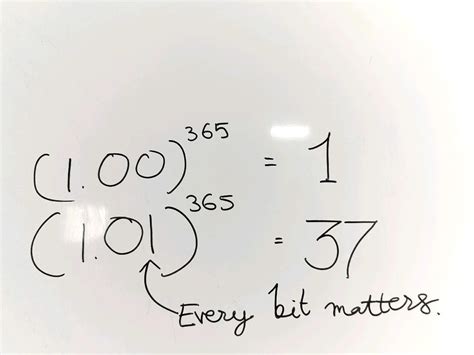 (1.00)^365 = 1
(1.01)^365 = 37
Every bit matters.